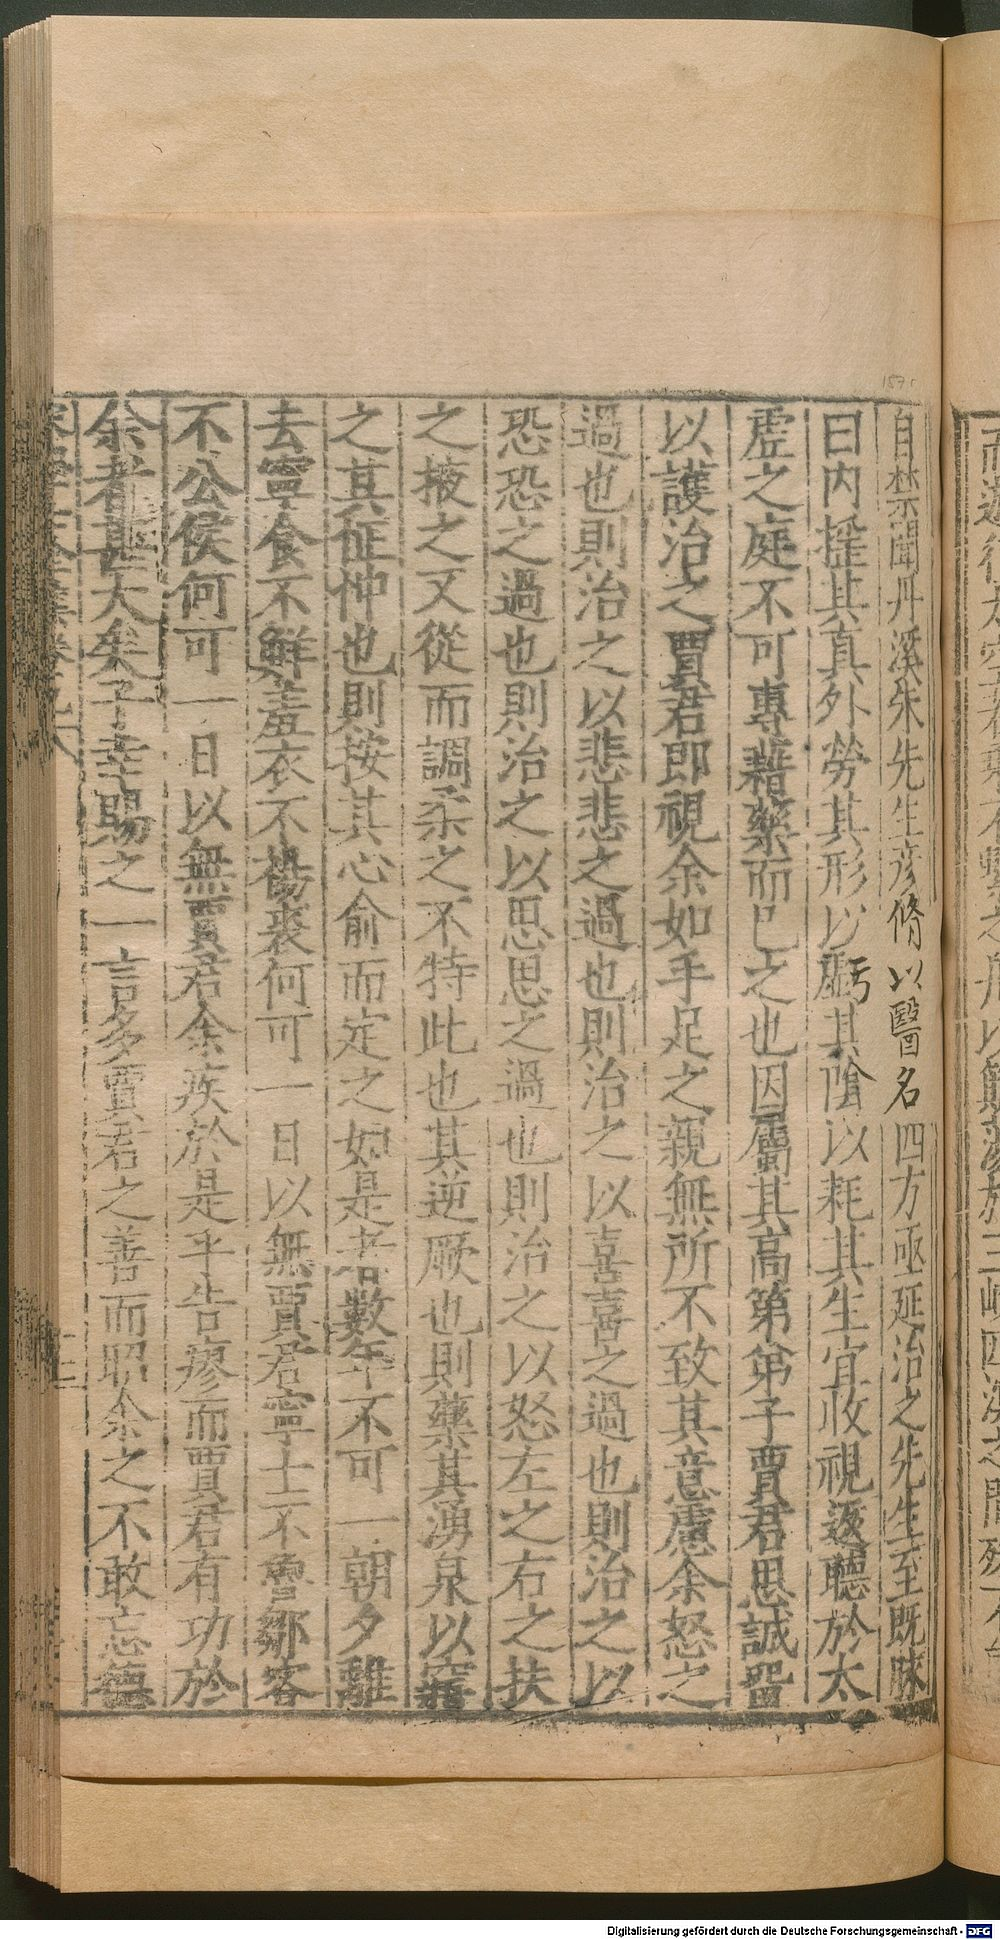 自禁聞丹溪朱先生彥脩以醫名四方亟延治之先生至既脉
曰内搖其真外勞其形以虧其隂以耗其生宜收視返聽於太
虛之庭不可專藉藥而已之也因屬其高第弟子賈君思誠畱
以護治之賈君即視余如手足之親無所不致其意慮余怒之
過也則治之以悲悲之過也則治之以喜喜之過也則治之以
恐恐之過也則治之以思思之過也則治之以怒左之右之扶
之掖之又從而調柔之不特此也其逆厥也則藥其湧泉以寤
之其怔忡也則按其心俞而定之如是者數年不可一朝夕離
去寧食不鮮羞衣不裼裘何可一日以無賈君寧士不魯鄒客
不公侯何可一日以無賈君余疾於是乎告瘳而賈君有功於
余者甚大矣子幸賜之一言多賈君之善而昭余之不敢忘德
157r
Digitalisierung gefördert durch die Deutsche Forschungsgemeinschaft - DFG